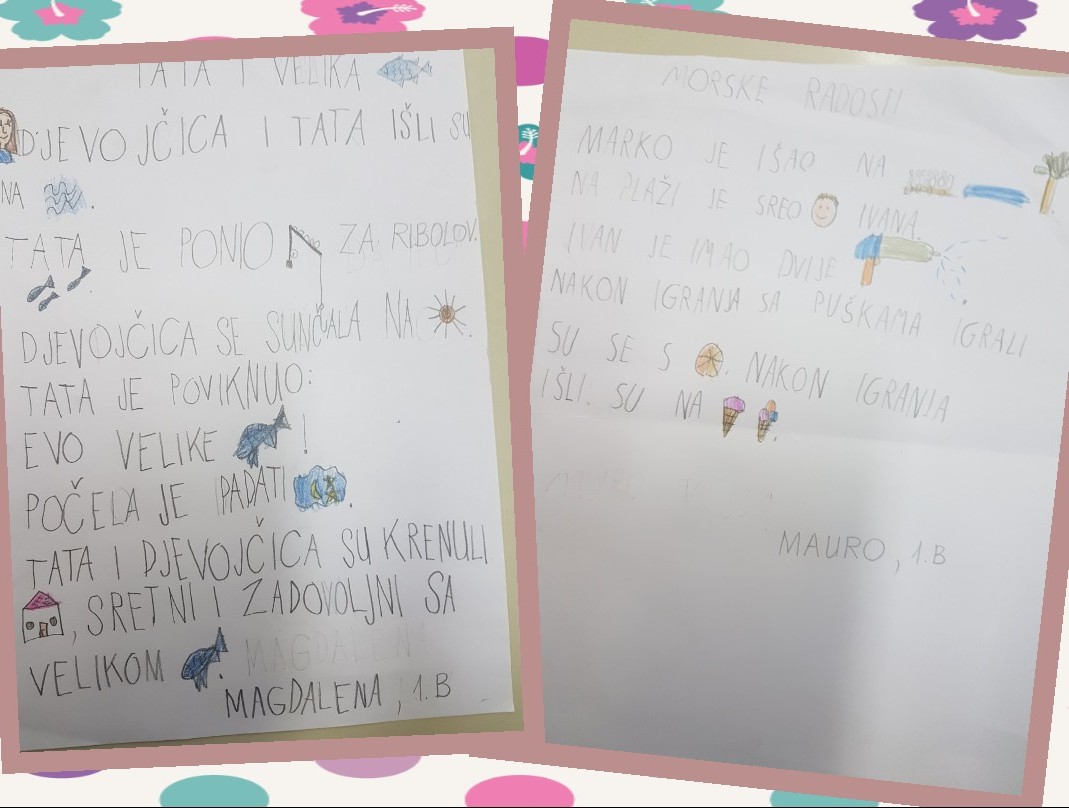 TATA I VELIKA
DJEVOJČICA I TATA IŠLI SU
NA .
TATA JE PONIO ZA RIBOLOV.
DJEVOJČICA SE SUNČALA NA .
TATA JE POVIKNUO:
EVO VELIKE !
POČELA JE PADATI .
TATA I DJEVOJČICA SU KRENULI
, SRETNI I ZADOVOLJNI SA
VELIKOM . MAGDALENA
MAGDALENA, 1.B
MORSKE RADOSTI
MARKO JE IŠAO NA .
NA PLAŽI JE SREO IVANA.
IVAN JE IMAO DVIJE .
NAKON IGRANJA SA PUŠKAMA IGRALI
SU SE S . NAKON IGRANJA
IŠLI SU NA .
MAURO, 1.B